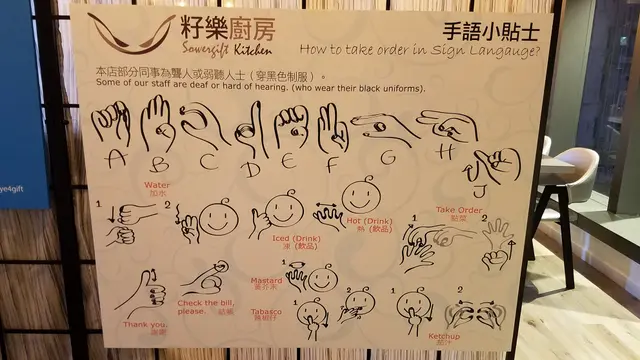 籽樂廚房
Sowergift Kitchen
手語小貼士
How to take order in Sign Langauge?
本店部分同事為聾人或弱聽人士（穿黑色制服）。
Some of our staff are deaf or hard of hearing. (who wear their black uniforms).
A B C D E F G H J
Water
加水
1 2
Iced (Drink)
凍 (飲品)
Hot (Drink)
熱 (飲品)
Take Order
點菜
1 2
Thank you.
多謝
Check the bill, please. 結賬
Mustard
黃芥末
1
Tabasco
辣椒仔
1 2
Ketchup
茄汁
1 2
ye4gift